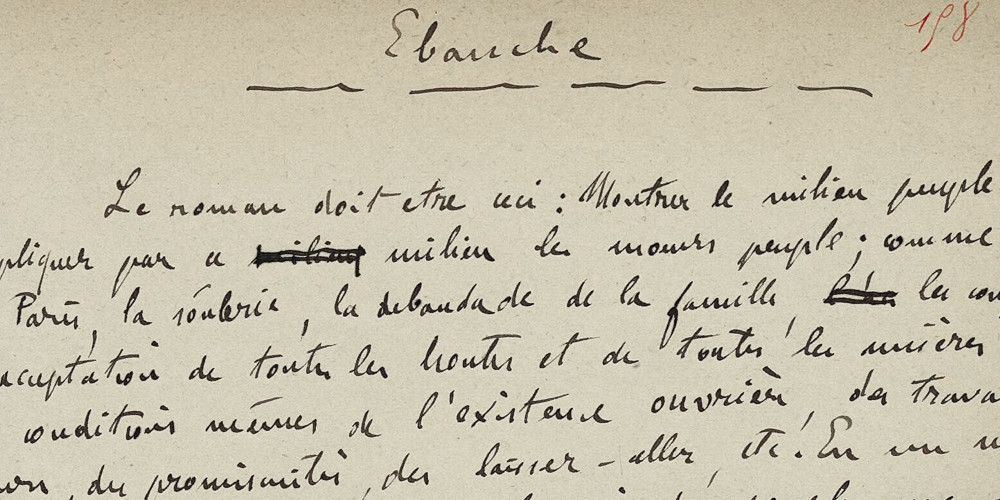 Ebauche
198
Le roman doit etre ceci : Montrer le milieu peuple
pliquer par ce milieu les moeurs peuple ; comme
Paris, la soûlerie, la debandade de la famille, les
acceptation de toutes les hontes et de toutes les misères
conditions mêmes de l'existence ouvrière, des trava
des promiscuités, des laisser-aller, etc. En un